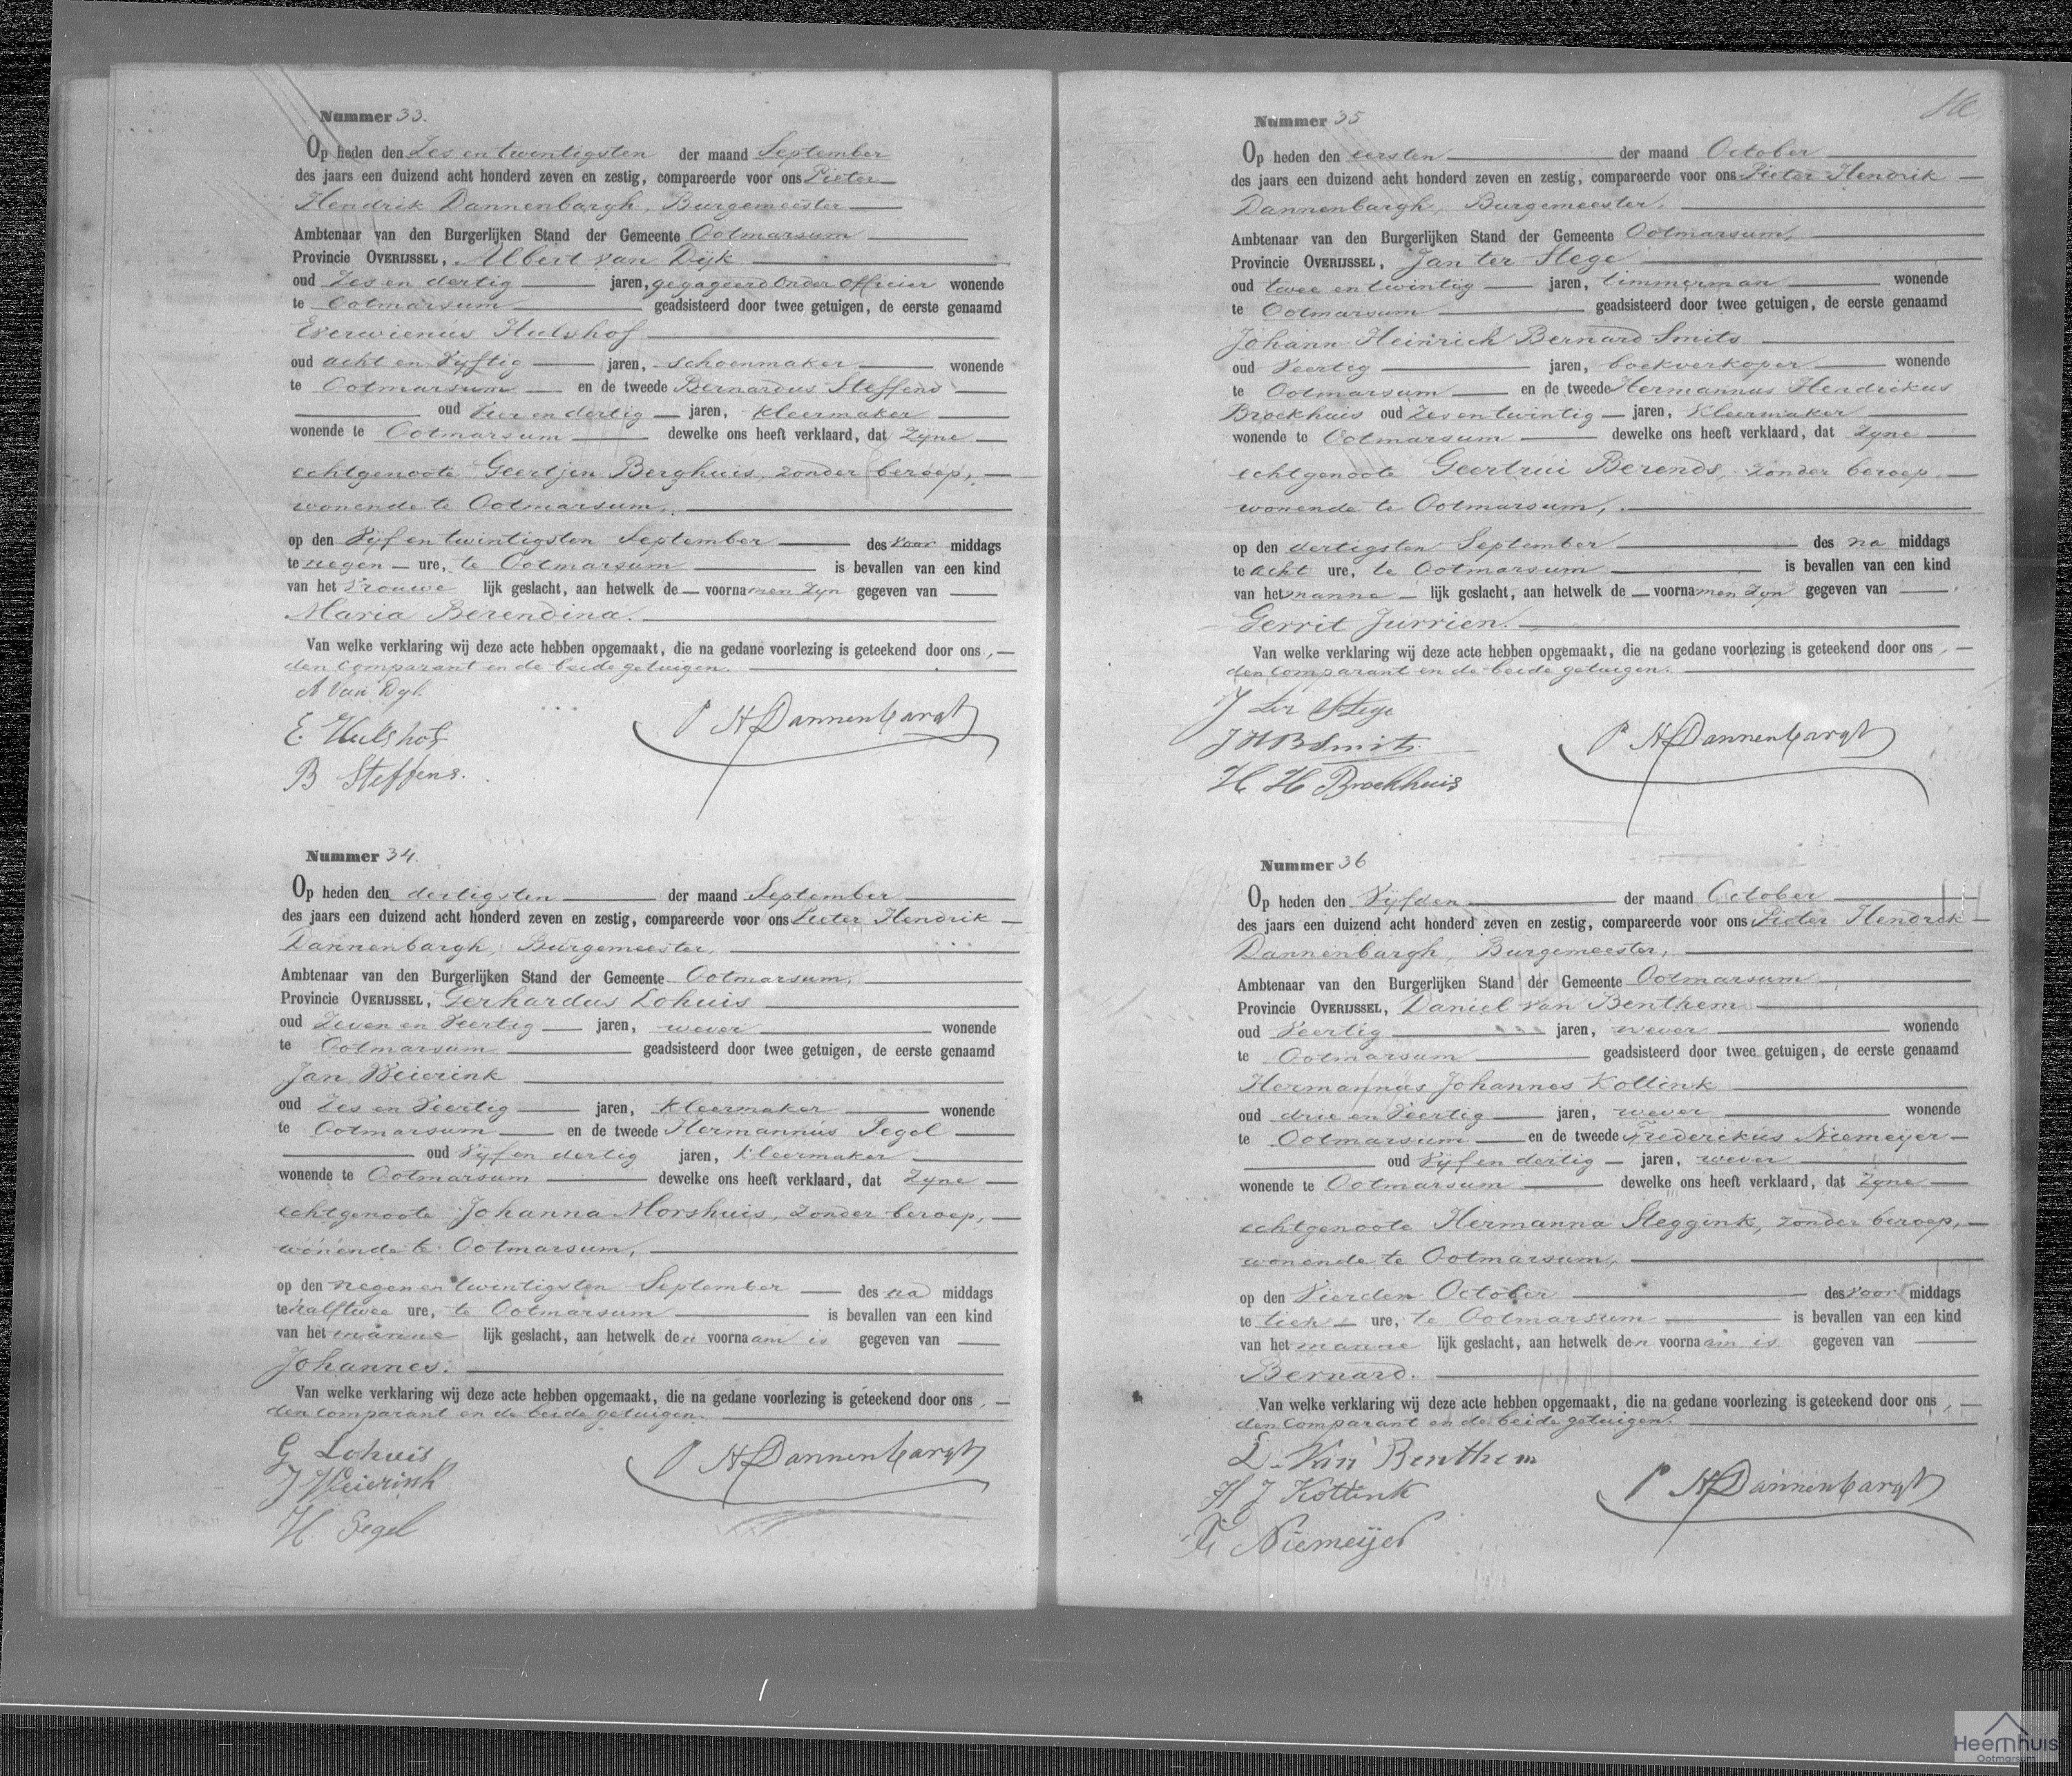 Nummer 33.
Op heden den Zes en twintigsten der maand September
des jaars een duizend acht honderd zeven en zestig, compareerde voor ons Pieter
Hendrik Dannenbargh, Burgemeester
Ambtenaar van den Burgerlijken Stand der Gemeente Ootmarsum
Provincie OVERIJSSEL, Albert van Dijk
oud Zes en dertig jaren, gegageerd Onder Officier wonende
te Ootmarsum geadsisteerd door twee getuigen, de eerste genaamd
Everwienus Hulshof
oud acht en Vijftig jaren, schoenmaker wonende
te Ootmarsum en de tweede Bernardus Steffens
oud Vier en dertig jaren, kleermaker
wonende te Ootmarsum dewelke ons heeft verklaard, dat zijne
echtgenoote Geertjen Berghuis, zonder beroep,
wonende te Ootmarsum,
op den Vijf en twintigsten September des voor middags
te negen ure, te Ootmarsum is bevallen van een kind
van het Vrouwe lijk geslacht, aan hetwelk de voornamen zijn gegeven van
Maria Berendina.
Van welke verklaring wij deze acte hebben opgemaakt, die na gedane voorlezing is geteekend door ons,
den comparant en de beide getuigen.
A van Dyk
E Hulshof
B Steffens.
P H Dannenbargh
Nummer 34.
Op heden den dertigsten der maand September
des jaars een duizend acht honderd zeven en zestig, compareerde voor ons Pieter Hendrik
Dannenbargh, Burgemeester,
Ambtenaar van den Burgerlijken Stand der Gemeente Ootmarsum,
Provincie OVERIJSSEL, Gerhardus Lohuis
oud Zeven en Veertig jaren, wever wonende
te Ootmarsum geadsisteerd door twee getuigen, de eerste genaamd
Jan Weierink
oud Zes en Veertig jaren, kleermaker wonende
te Ootmarsum en de tweede Hermannus Segel
oud Vijf en dertig jaren, kleermaker
wonende te Ootmarsum dewelke ons heeft verklaard, dat zijne
echtgenoote Johanna Morshuis, zonder beroep,
wonende te Ootmarsum,
op den negen en twintigsten September des na middags
te half twee ure, te Ootmarsum is bevallen van een kind
van het manne lijk geslacht, aan hetwelk den voornaam is gegeven van
Johannes.
Van welke verklaring wij deze acte hebben opgemaakt, die na gedane voorlezing is geteekend door ons,
den comparant en de beide getuigen.
G Lohuis
J Weierink
H Segel
P H Dannenbargh
Nummer 35
Op heden den eersten der maand October
des jaars een duizend acht honderd zeven en zestig, compareerde voor ons Pieter Hendrik
Dannenbargh, Burgemeester,
Ambtenaar van den Burgerlijken Stand der Gemeente Ootmarsum,
Provincie OVERIJSSEL, Jan ter Stege
oud twee en twintig jaren, timmerman wonende
te Ootmarsum geadsisteerd door twee getuigen, de eerste genaamd
Johann Heinrich Bernard Smits
oud Veertig jaren, boekverkoper wonende
te Ootmarsum en de tweede Hermannus Hendrikus
Broekhuis oud Zes en twintig jaren, kleermaker
wonende te Ootmarsum dewelke ons heeft verklaard, dat zijne
echtgenoote Geertrui Berends, zonder beroep,
wonende te Ootmarsum,
op den dertigsten September des na middags
te acht ure, te Ootmarsum is bevallen van een kind
van het manne lijk geslacht, aan hetwelk de voornamen zijn gegeven van
Gerrit Jurrien.
Van welke verklaring wij deze acte hebben opgemaakt, die na gedane voorlezing is geteekend door ons,
den comparant en de beide getuigen.
J ter Stege
J H B Smits
H H Broekhuis
P H Dannenbargh
Nummer 36
Op heden den Vijfden der maand October
des jaars een duizend acht honderd zeven en zestig, compareerde voor ons Pieter Hendrik
Dannenbargh, Burgemeester,
Ambtenaar van den Burgerlijken Stand der Gemeente Ootmarsum
Provincie OVERIJSSEL, Daniel van Benthem
oud Veertig jaren, wever wonende
te Ootmarsum geadsisteerd door twee getuigen, de eerste genaamd
Hermannus Johannes Kottink
oud drie en Veertig jaren, wever wonende
te Ootmarsum en de tweede Frederikus Niemeijer
oud Vijf en dertig jaren, wever
wonende te Ootmarsum dewelke ons heeft verklaard, dat zijne
echtgenoote Hermanna Steggink, zonder beroep,
wonende te Ootmarsum,
op den Vierden October des voor middags
te tien ure, te Ootmarsum is bevallen van een kind
van het manne lijk geslacht, aan hetwelk den voornaam is gegeven van
Bernard.
Van welke verklaring wij deze acte hebben opgemaakt, die na gedane voorlezing is geteekend door ons,
den comparant en de beide getuigen.
D. Van Benthem
H J Kottink
F Niemeijer
P H Dannenbargh
Heemhuis
Ootmarsum